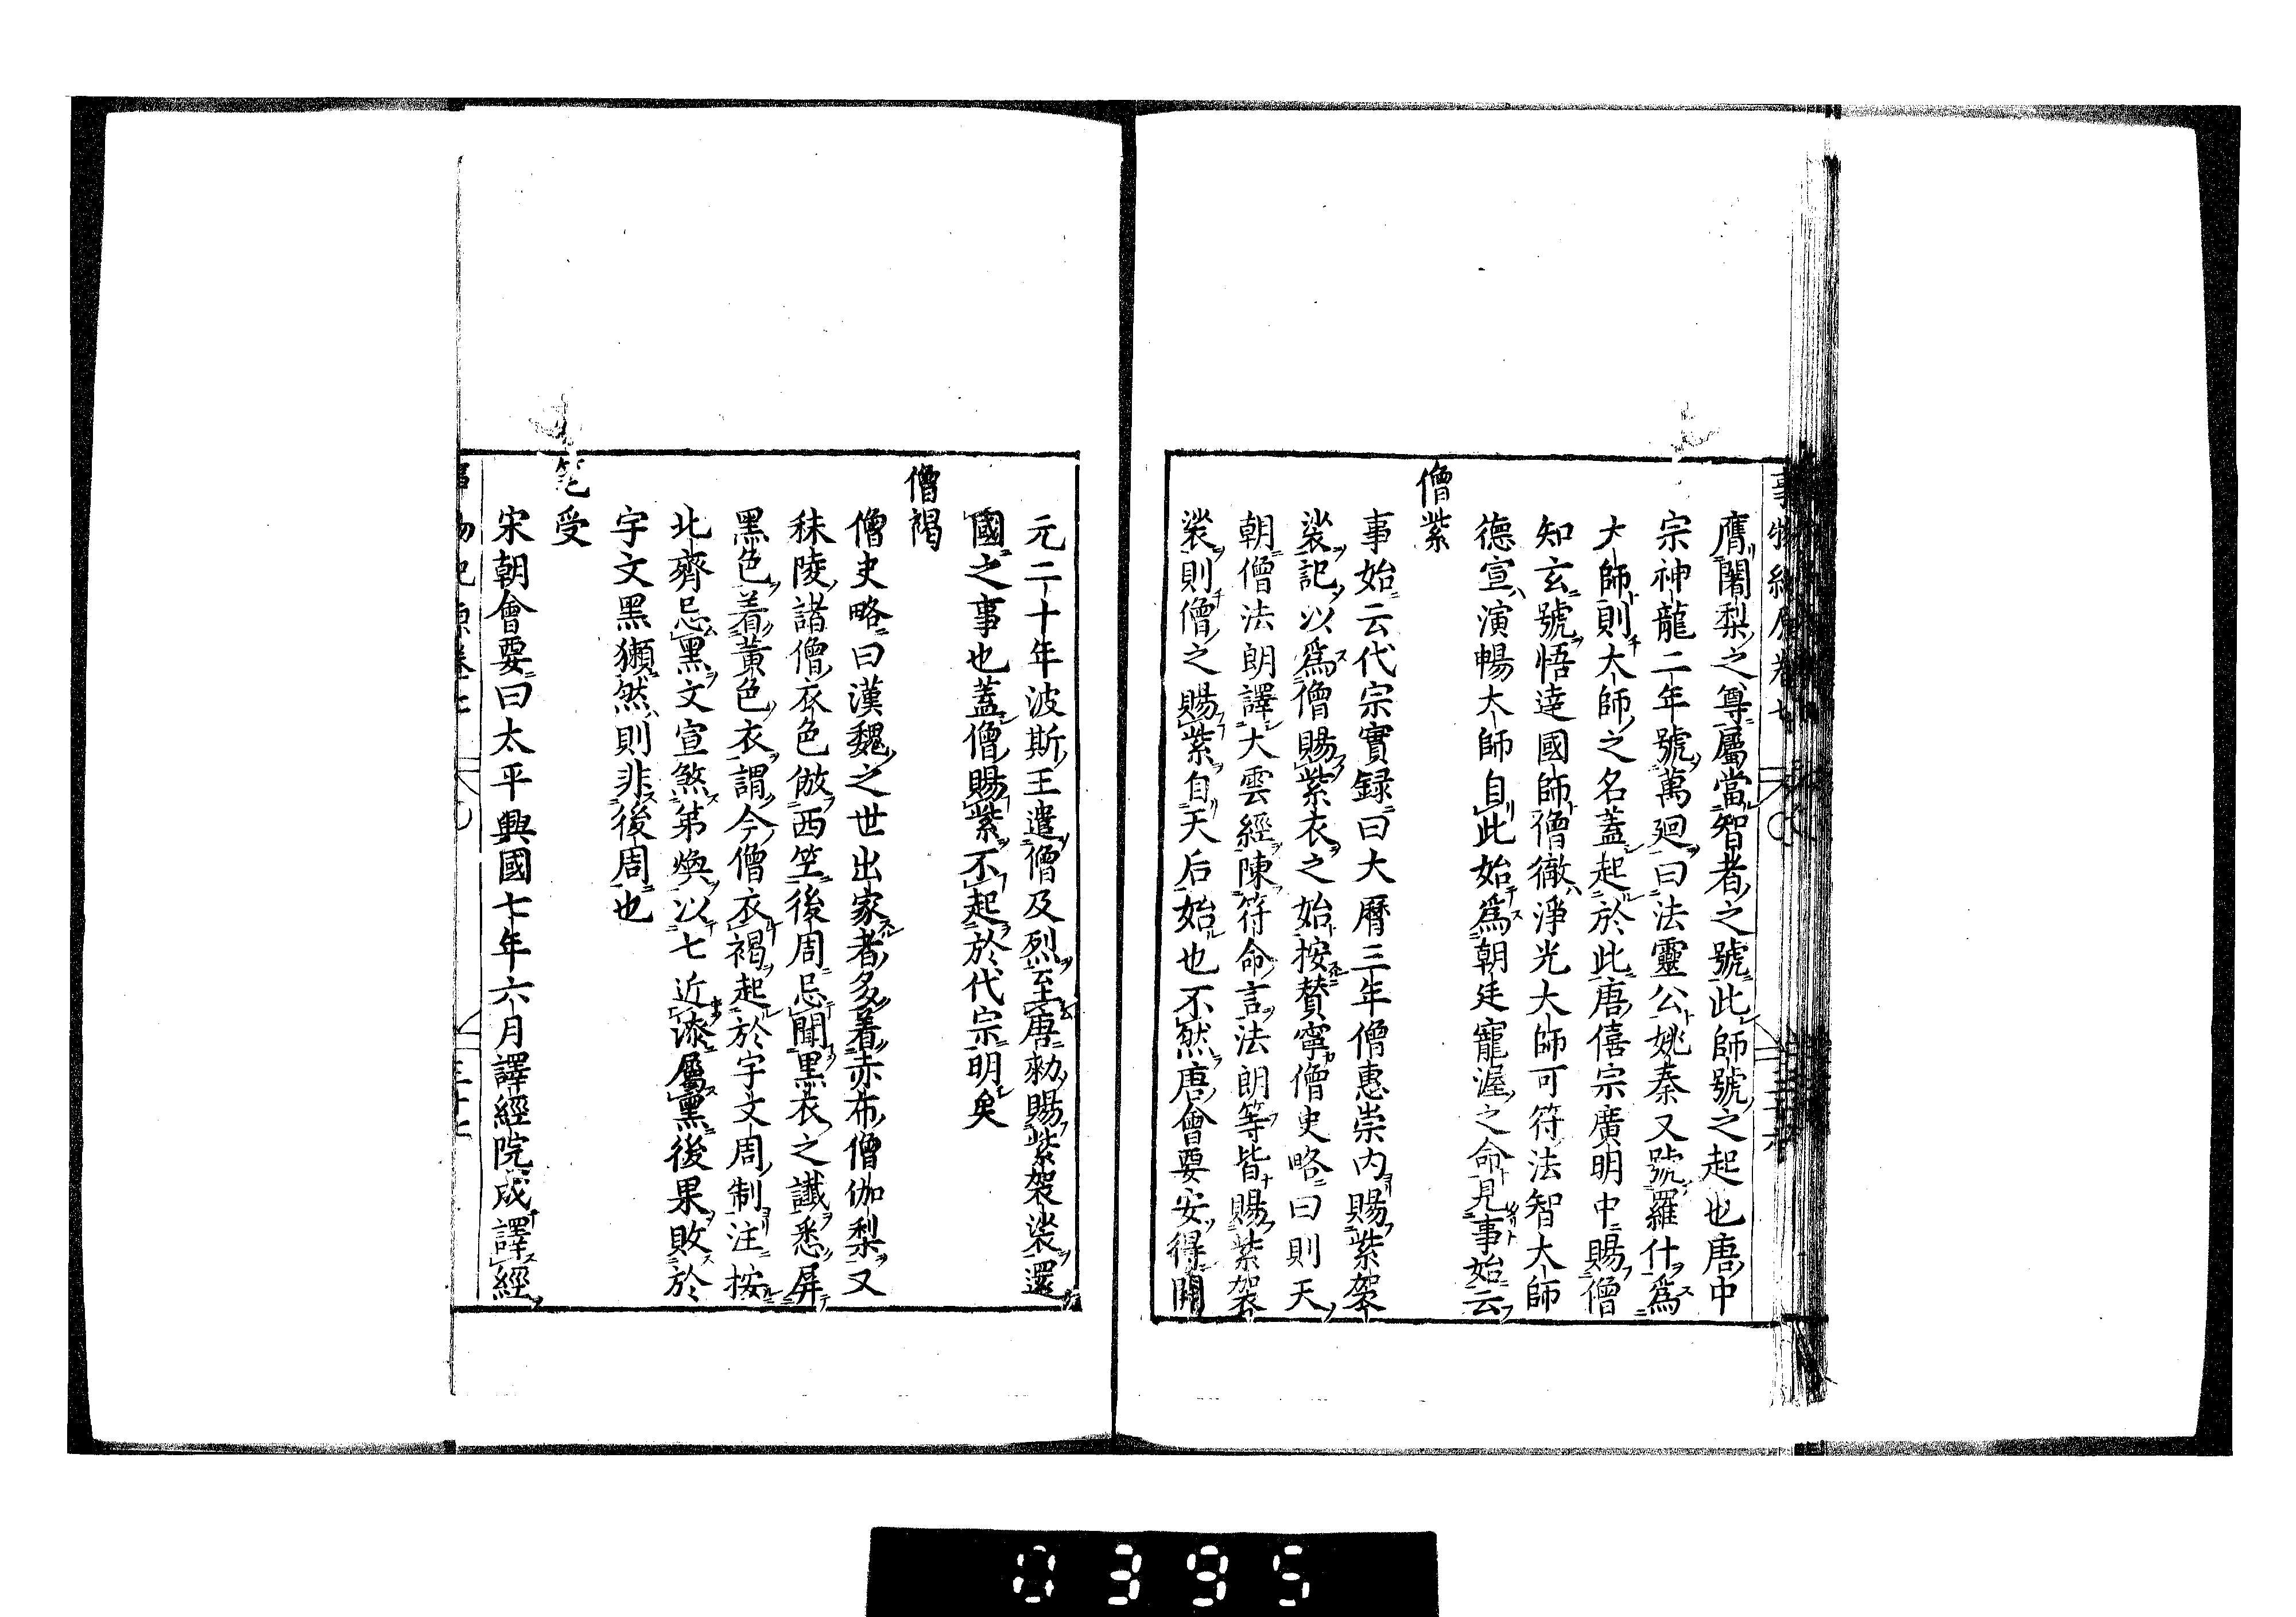 事物紀原卷七
膺闍梨之尊屬當智者之號此師號之起也唐中
宗神龍二年號萬廻曰法靈公姚秦又號羅什爲
大師則大師之名蓋起於此唐僖宗廣明中賜僧
知玄號悟達國師僧徹淨光大師可符法智大師
德宣演暢大師自此始爲朝廷寵渥之命見事始云
僧紫
事始云代宗實録曰大曆三年僧惠崇内賜紫袈
裟記以爲僧賜紫衣之始按賛寧僧史略曰則天
朝僧法朗譯大雲經陳符命言法朗等皆賜紫袈
裟則僧之賜紫自天后始也不然唐會要安得開
元二十年波斯王遣僧及烈至唐勑賜紫袈裟還
國之事也蓋僧賜紫不起於代宗明矣
僧褐
僧史略曰漢魏之世出家者多着赤布僧伽梨又
秣陵諸僧衣色倣西竺後周忌聞黒衣之讖悉屏
黑色着黄色衣謂今僧衣褐起於宇文周制注按
北齊忌黑文宣煞弟煥以七近漆屬黑後果敗於
宇文黑獺然則非後周也
筆受
宋朝會要曰太平興國七年六月譯經院成譯經
事物紀原卷七 三十七
0395